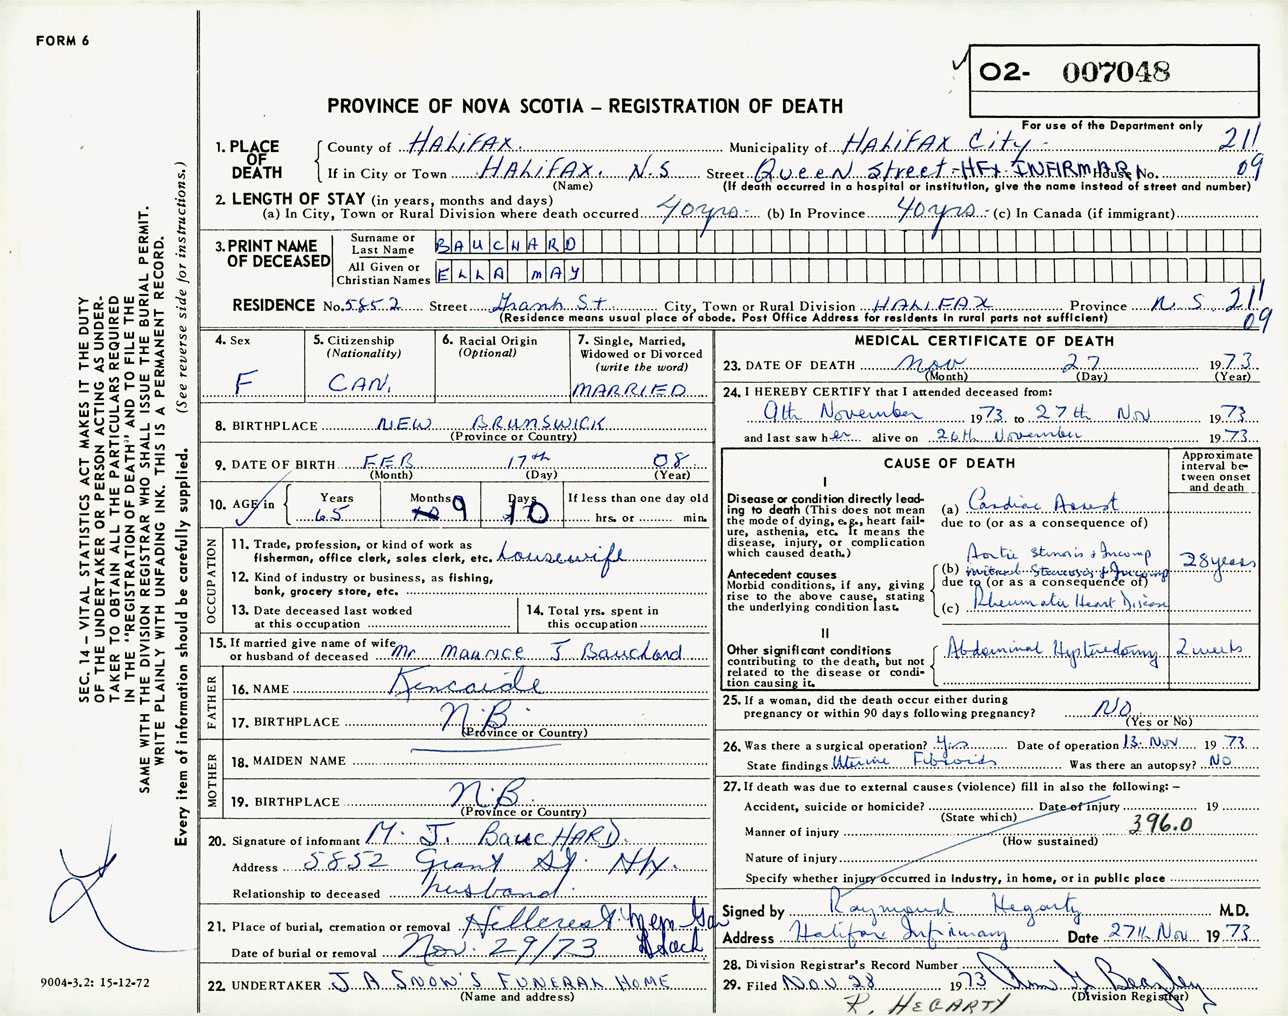 FORM 6
O2- 007048
PROVINCE OF NOVA SCOTIA — REGISTRATION OF DEATH
For use of the Department only
1. PLACE OF DEATH
County of HALIFAX. Municipality of HALIFAX City. 211
If in City or Town HALIFAX. N.S Street Queen Street-HFX INFIRMARY House No. 09
(Name) (If death occurred in a hospital or institution, give the name instead of street and number)
2. LENGTH OF STAY (in years, months and days)
(a) In City, Town or Rural Division where death occurred 40 yrs. (b) In Province 40 yrs. (c) In Canada (if immigrant)
3. PRINT NAME OF DECEASED
Surname or Last Name BAUCHARD
All Given or Christian Names ELLA MAY
RESIDENCE No. 5852 Street Grant St. City, Town or Rural Division HALIFAX Province N.S 211
(Residence means usual place of abode. Post Office Address for residents in rural parts not sufficient) 09
4. Sex
F
5. Citizenship
(Nationality)
CAN.
6. Racial Origin
(Optional)
7. Single, Married, Widowed or Divorced
(write the word)
MARRIED
8. BIRTHPLACE NEW BRUNSWICK
(Province or Country)
9. DATE OF BIRTH FEB 17th 08
(Month) (Day) (Year)
10. AGE in
Years 65
Months 9
Days 10
If less than one day old
hrs. or min.
OCCUPATION
11. Trade, profession, or kind of work as
fisherman, office clerk, sales clerk, etc. housewife
12. Kind of industry or business, as fishing,
bank, grocery store, etc.
13. Date deceased last worked
at this occupation
14. Total yrs. spent in
this occupation
15. If married give name of wife
or husband of deceased Mr. Maurice J Bauchard
FATHER
16. NAME Kencaide
17. BIRTHPLACE N.B.
(Province or Country)
MOTHER
18. MAIDEN NAME
19. BIRTHPLACE N.B.
(Province or Country)
20. Signature of informant M. J. BaucHARD.
Address 5852 Grant St. Hfx.
Relationship to deceased husband.
21. Place of burial, cremation or removal Hillcrest Mem Gar
Date of burial or removal Nov. 29/73
22. UNDERTAKER J A SNOW'S FUNERAL HOME
(Name and address)
MEDICAL CERTIFICATE OF DEATH
23. DATE OF DEATH Nov 27 1973
(Month) (Day) (Year)
24. I HEREBY CERTIFY that I attended deceased from:
9th November 1973 to 27th Nov 1973
and last saw her alive on 26th November 1973
CAUSE OF DEATH
Approximate interval between onset and death
I
Disease or condition directly leading to death (This does not mean the mode of dying, e.g., heart failure, asthenia, etc. It means the disease, injury, or complication which caused death.)
(a) Cardiac Arrest
due to (or as a consequence of)
Antecedent causes
Morbid conditions, if any, giving rise to the above cause, stating the underlying condition last.
Aortic Stenosis & Incomp
(b) mitral Stenosis & Incomp 28 years
due to (or as a consequence of)
(c) Rheumatic Heart Disease
II
Other significant conditions
contributing to the death, but not related to the disease or condition causing it.
Abdominal Hysterectomy 2 weeks
25. If a woman, did the death occur either during
pregnancy or within 90 days following pregnancy? NO
(Yes or No)
26. Was there a surgical operation? Yes Date of operation 13. Nov 1973
State findings Uterine Fibroids Was there an autopsy? NO
27. If death was due to external causes (violence) fill in also the following: —
Accident, suicide or homicide? Date of injury 19
(State which)
Manner of injury 396.0
(How sustained)
Nature of injury
Specify whether injury occurred in industry, in home, or in public place
Signed by Raymond Hegarty M.D.
Address Halifax Infirmary Date 27th Nov 1973
28. Division Registrar's Record Number
29. Filed NOV 28 1973
(Division Registrar)
R. HEGARTY
SEC. 14 — VITAL STATISTICS ACT MAKES IT THE DUTY
OF THE UNDERTAKER OR PERSON ACTING AS UNDER-
TAKER TO OBTAIN ALL THE PARTICULARS REQUIRED
IN THE "REGISTRATION OF DEATH" AND TO FILE THE
SAME WITH THE DIVISION REGISTRAR WHO SHALL ISSUE THE BURIAL PERMIT.
WRITE PLAINLY WITH UNFADING INK. THIS IS A PERMANENT RECORD.
Every item of information should be carefully supplied. (See reverse side for instructions.)
9004-3.2: 15-12-72